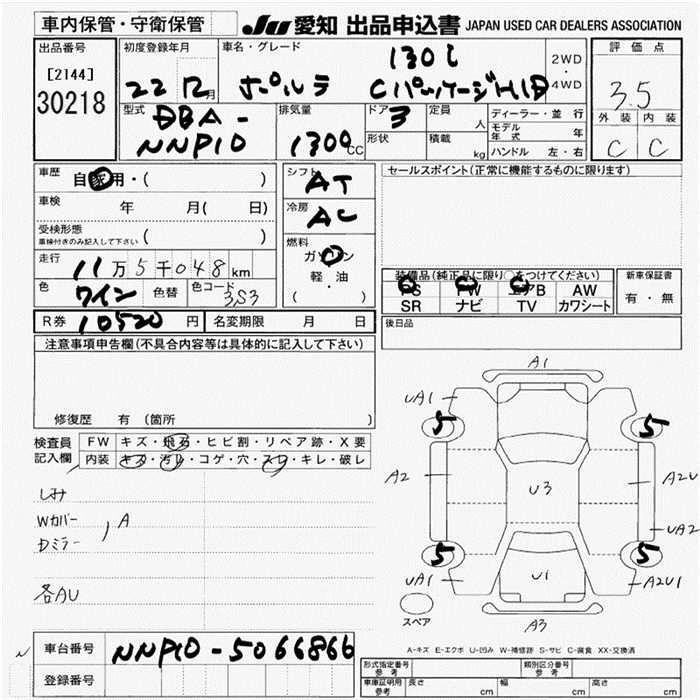 車内保管・守衛保管
JU 愛知 出品申込書 JAPAN USED CAR DEALERS ASSOCIATION
出品番号
[2144]
30218
初度登録年月
22 12月
車名・グレード
130i
ポルテ Cパッケージ HID
2WD
・
4WD
評価点
3.5
外装 内装
C C
型式
DBA-
NNP10
排気量
1300cc
ドア 3
形状
定員 人
積載 kg
ディーラー・並行
モデル年式 年
ハンドル 左・右
車歴
自家用・( )
車検 年 月( 日)
受検形態
車検付きのみ記入して下さい ( )
走行
11万5千048km
色 ワイン 色替 色コード 3S3
シフト AT
冷房 AC
燃料
ガソリン
軽・油
( )
R券 10520円 名変期限 月 日
セールスポイント(正常に機能するものに限ります)
装備品(純正品に限り○をつけてください)
PS PW エアB AW
SR ナビ TV カワシート
新車保証書
有・無
後日品
注意事項申告欄(不具合内容等は具体的に記入して下さい)
修復歴 有 (箇所 )
検査員
記入欄
FW キズ・飛石・ヒビ割・リペア跡・X要
内装 キズ・汚レ・コゲ・穴・スレ・キレ・破レ
しみ
Wカバー
Dミラー , A
各AU
A1
UA1
5
5
A2
U3
A2U
UA2
5
5
UA1
U1
A2U1
A3
スペア
A-キズ E-エクボ U-凹み W-補修跡 S-サビ C-腐食 XX-交換済
車台番号 NNP10-5066866
登録番号
形式指定番号
参考
類別区分番号
参考
車庫証明用
参考
長さ cm 幅 cm 高さ cm